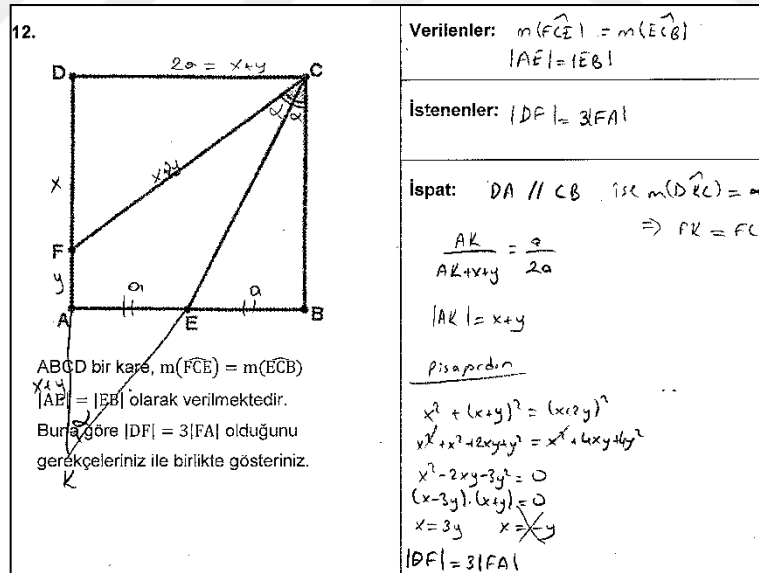 12.
2a = x+y
D
C
α
α
x+2y
x
F
y
a
a
A
E
B
ABCD bir kare, m(FCE) = m(ECB)
x+y
|AE| = |EB| olarak verilmektedir.
Buna göre |DF| = 3|FA| olduğunu
α
gerekçeleriniz ile birlikte gösteriniz.
K
Verilenler: m(FCE) = m(ECB)
|AE| = |EB|
İstenenler: |DF| = 3|FA|
İspat: DA // CB ise m(DKC) = α
⇒ FK = FC
AK / AK+x+y = a / 2a
|AK| = x+y
pisagordan
x² + (x+y)² = (x+2y)²
x²+x²+2xy+y² = x²+4xy+4y²
x²-2xy-3y² = 0
(x-3y).(x+y) = 0
x = 3y x = -y
|DF| = 3|FA|